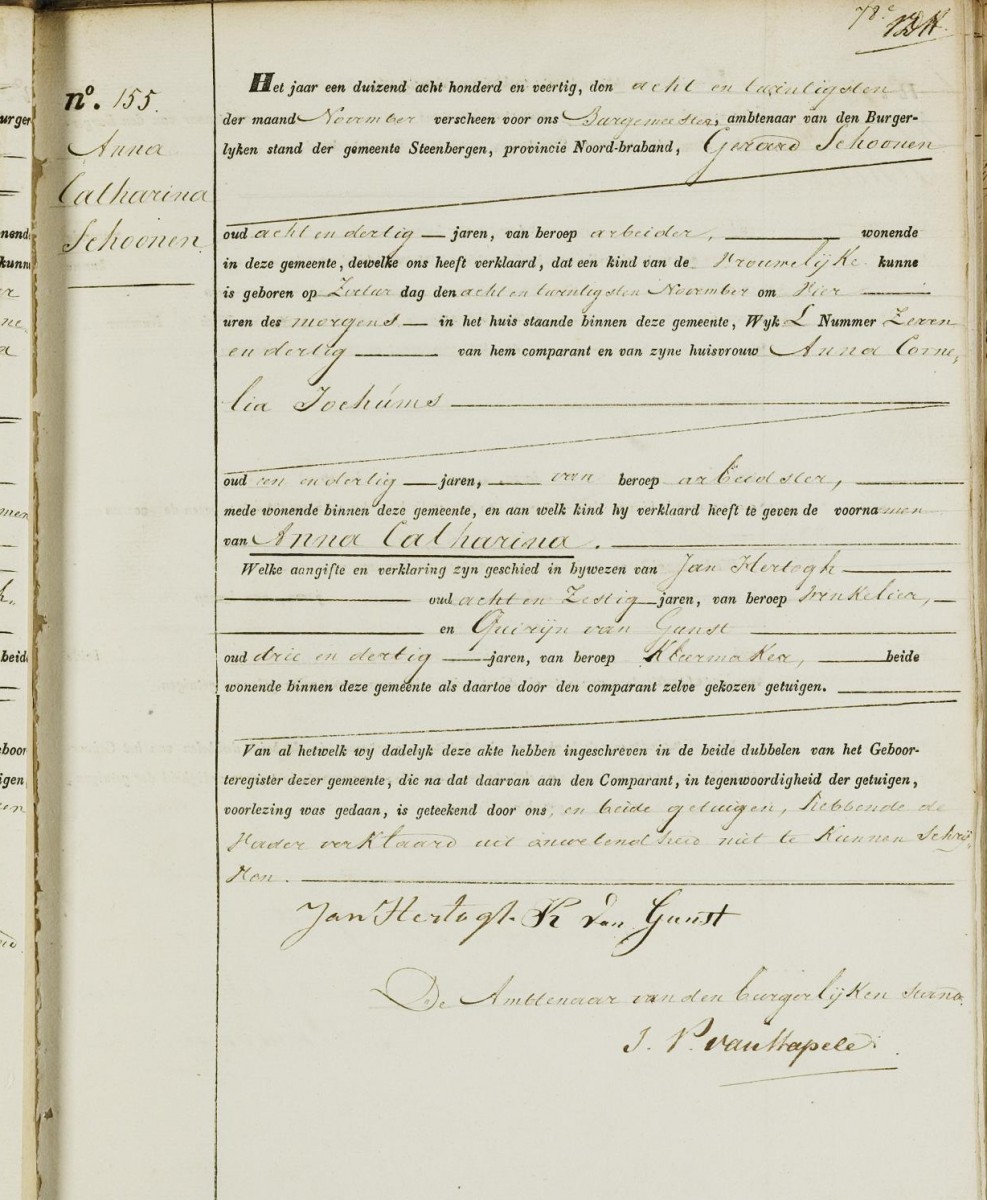 78e
nº. 155.
Anna
Catharina
Schoonen
Het jaar een duizend acht honderd en veertig, den acht en twintigsten
der maand November verscheen voor ons Burgemeester, ambtenaar van den Burger-
lyken stand der gemeente Steenbergen, provincie Noord-braband, Gerard Schoonen
oud acht en dertig jaren, van beroep arbeider, wonende
in deze gemeente, dewelke ons heeft verklaard, dat een kind van de Vrouwelijke kunne
is geboren op Zatur dag den acht en twintigsten November om Vier
uren des morgens in het huis staande binnen deze gemeente, Wyk L Nummer Zeven
en dertig van hem comparant en van zyne huisvrouw Anna Corne,
lia Jochums
oud een en dertig jaren, van beroep arbeidster,
mede wonende binnen deze gemeente, en aan welk kind hy verklaard heeft te geven de voornamen
van Anna Catharina.
Welke aangifte en verklaring zyn geschied in bywezen van Jan Hertogh
oud acht en Zestig jaren, van beroep Winkelier,
en Quirijn van Gunst
oud drie en dertig jaren, van beroep Kleermaker, beide
wonende binnen deze gemeente als daartoe door den comparant zelve gekozen getuigen.
Van al hetwelk wy dadelyk deze akte hebben ingeschreven in de beide dubbelen van het Geboor-
teregister dezer gemeente, die na dat daarvan aan den Comparant, in tegenwoordigheid der getuigen,
voorlezing was gedaan, is geteekend door ons, en beide getuigen, hebbende de
Vader verklaard uit onwetendheid niet te kunnen Schrij-
ven.
Jan Hertogh K van Gunst
De Ambtenaar van den burgerlijken stand
J. P. van